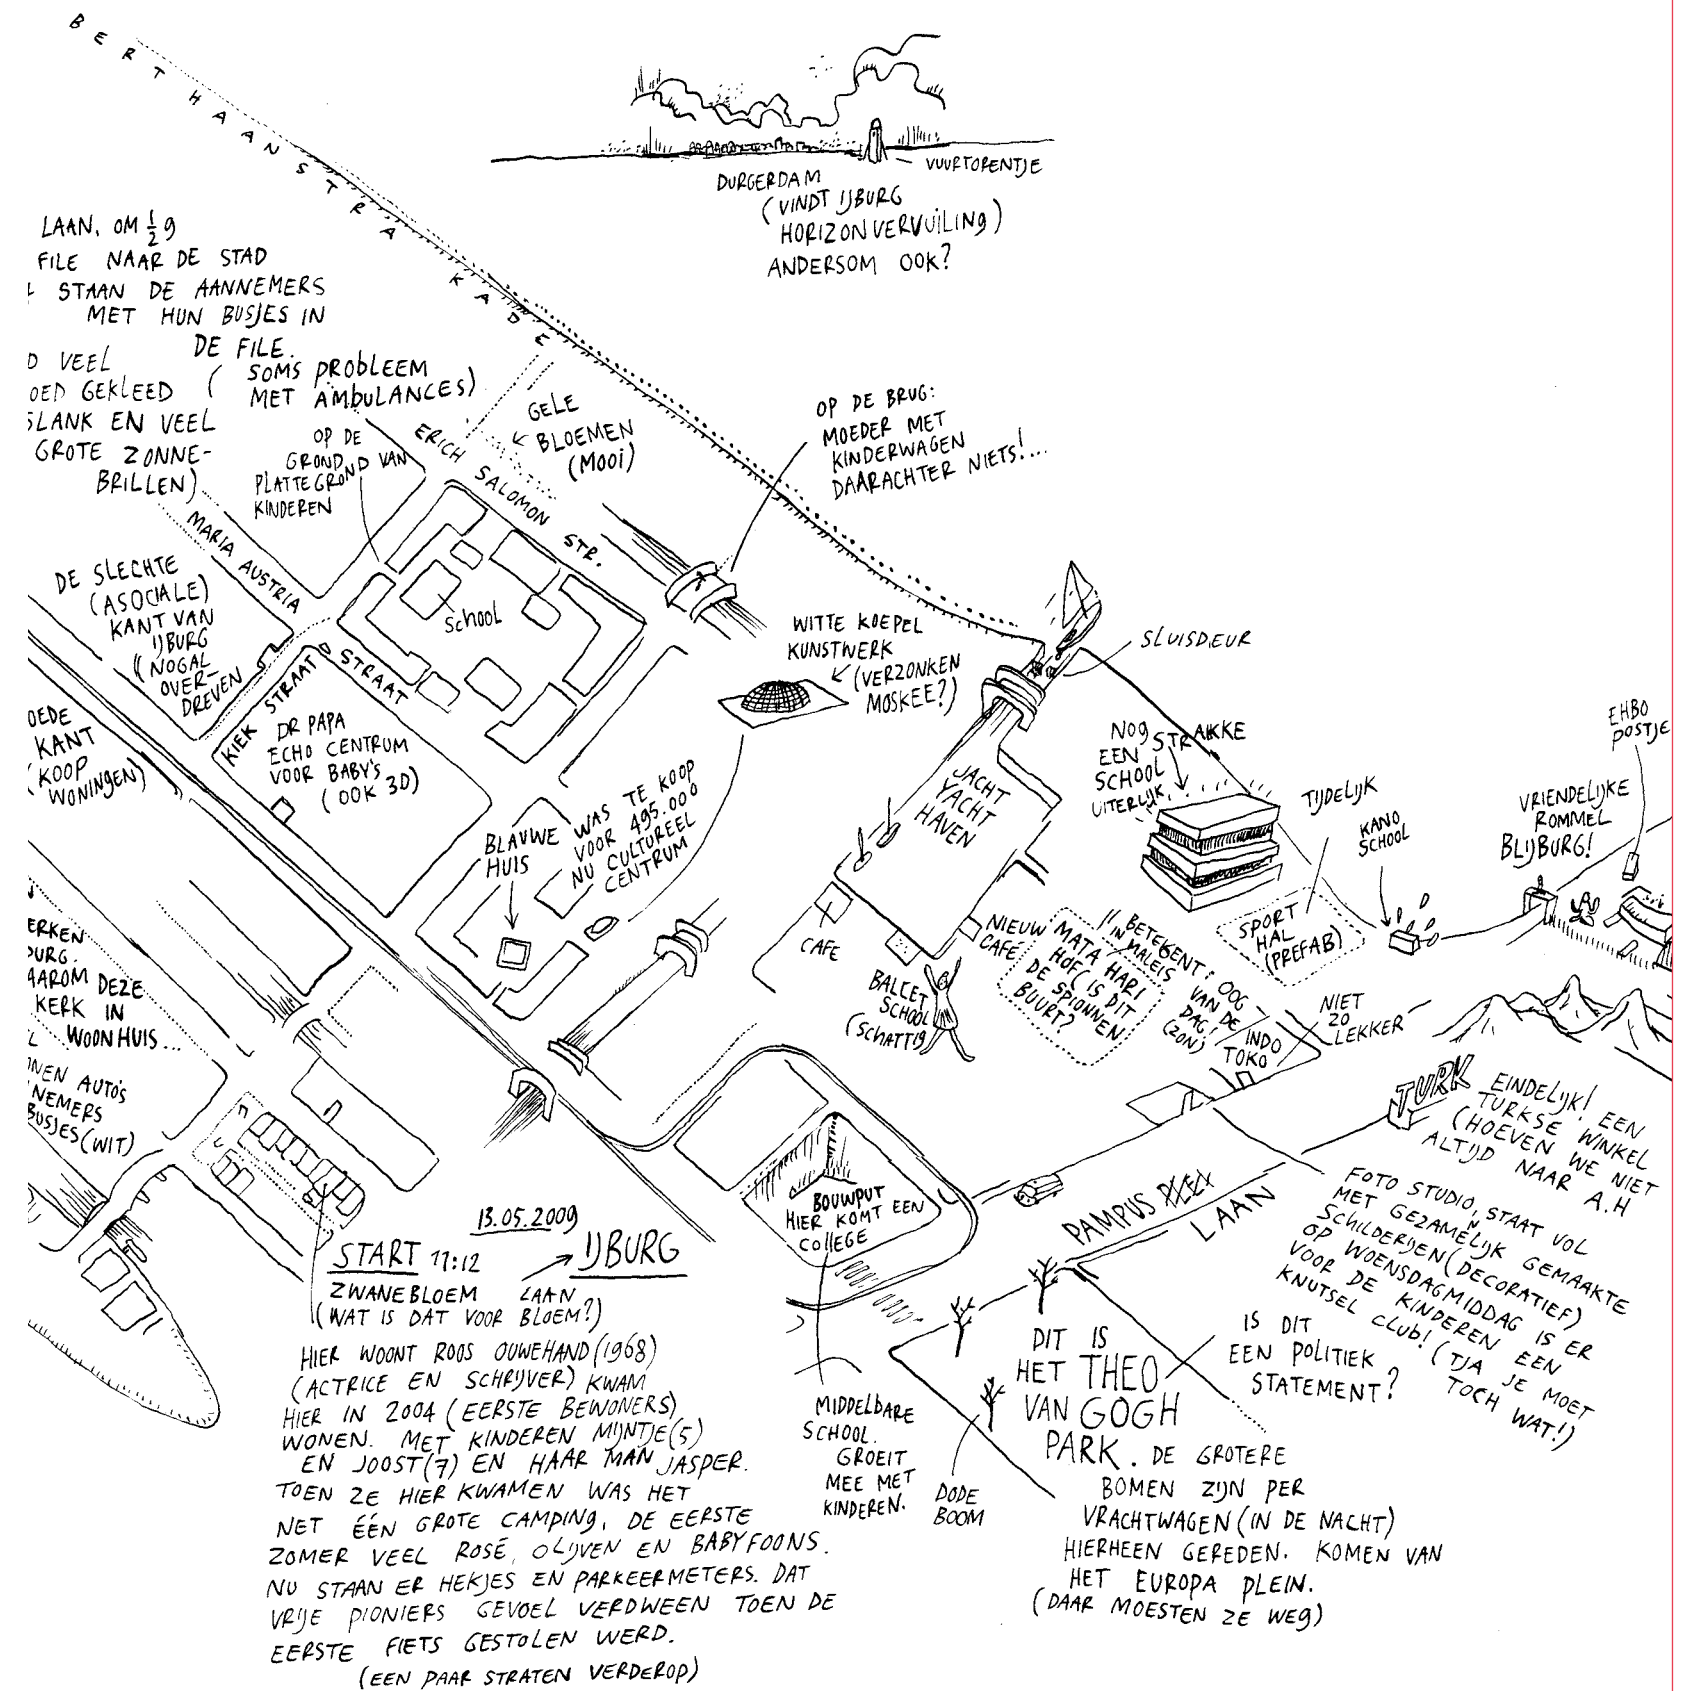 BERT HAANSTRA KADE
VUURTORENTJE
DURGERDAM
(VINDT IJBURG
HORIZONVERVUILING)
ANDERSOM OOK?
LAAN, OM ½ 9
FILE NAAR DE STAD
STAAN DE AANNEMERS
MET HUN BUSJES IN
DE FILE.
(SOMS PROBLEEM
MET AMBULANCES)
VEEL
OED GEKLEED
SLANK EN VEEL
GROTE ZONNE-
BRILLEN)
OP DE
GROND
PLATTEGROND VAN
KINDEREN
ERICH SALOMON STR.
GELE
BLOEMEN
(MOOI)
OP DE BRUG:
MOEDER MET
KINDERWAGEN
DAARACHTER NIETS!...
MARIA AUSTRIA STRAAT
SCHOOL
DE SLECHTE
(ASOCIALE)
KANT VAN
IJBURG
(NOGAL
OVER-
DREVEN
KIEK STRAAT
DR PAPA
ECHO CENTRUM
VOOR BABY'S
(OOK 3D)
OEDE
KANT
(KOOP
WONINGEN)
WITTE KOEPEL
KUNSTWERK
(VERZONKEN
MOSKEE?)
SLUISDEUR
JACHT
YACHT
HAVEN
NOG
EEN STRAKKE
SCHOOL
UITERLIJK
TIJDELIJK
KANO
SCHOOL
VRIENDELIJKE
ROMMEL
BLIJBURG!
EHBO
POSTJE
BLAUWE
HUIS
WAS TE KOOP
VOOR 495.000
NU CULTUREEL
CENTRUM
CAFE
NIEUW
CAFÉ
BALLET
SCHOOL
(SCHATTIG
MATA HARI
HOF (IS DIT
DE SPIONNEN
BUURT?
BETEKENT:
IN MALEIS OOG
VAN DE
DAG!
(ZON)
SPORT
HAL
(PREFAB)
INDO
TOKO
NIET
ZO
LEKKER
ERKEN
BURG.
AAROM DEZE
KERK IN
WOONHUIS...
NEN AUTO'S
NEMERS
BUSJES (WIT)
TURK
EINDELIJK! EEN
TURKSE WINKEL
(HOEVEN WE NIET
ALTIJD NAAR A.H
BOUWPUT
HIER KOMT EEN
COLLEGE
PAMPUS
LAAN
FOTO STUDIO, STAAT VOL
MET GEZAMELIJK GEMAAKTE
SCHILDERIJEN (DECORATIEF)
OP WOENSDAGMIDDAG IS ER
VOOR DE KINDEREN EEN
KNUTSEL CLUB! (TJA JE MOET
TOCH WAT!)
13.05.2009
START 11:12 → IJBURG
ZWANEBLOEM LAAN
(WAT IS DAT VOOR BLOEM?)
HIER WOONT ROOS OUWEHAND (1968)
(ACTRICE EN SCHRIJVER) KWAM
HIER IN 2004 (EERSTE BEWONERS)
WONEN. MET KINDEREN MIJNTJE (5)
EN JOOST (7) EN HAAR MAN JASPER.
TOEN ZE HIER KWAMEN WAS HET
NET ÉÉN GROTE CAMPING, DE EERSTE
ZOMER VEEL ROSÉ, OLIJVEN EN BABYFOONS.
NU STAAN ER HEKJES EN PARKEERMETERS. DAT
VRIJE PIONIERS GEVOEL VERDWEEN TOEN DE
EERSTE FIETS GESTOLEN WERD.
(EEN PAAR STRATEN VERDEROP)
MIDDELBARE
SCHOOL.
GROEIT
MEE MET
KINDEREN.
DODE
BOOM
IS DIT
EEN POLITIEK
STATEMENT?
DIT IS
HET THEO
VAN GOGH
PARK. DE GROTERE
BOMEN ZIJN PER
VRACHTWAGEN (IN DE NACHT)
HIERHEEN GEREDEN. KOMEN VAN
HET EUROPA PLEIN.
(DAAR MOESTEN ZE WEG)